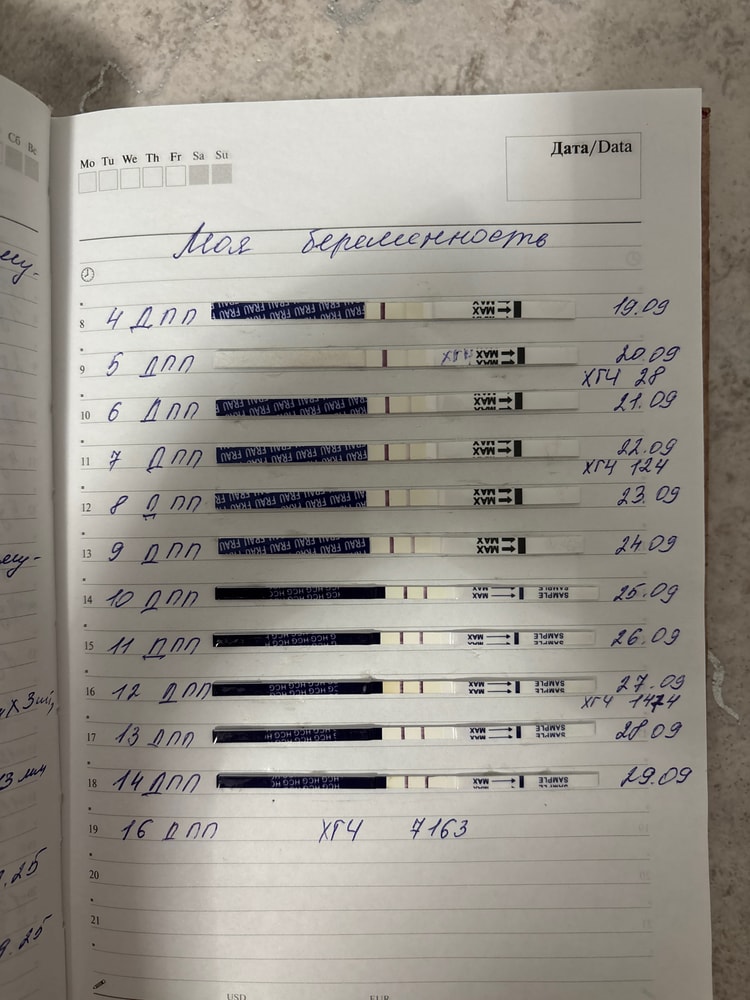 Сб Вс
Mo Tu We Th Fr Sa Su
Дата/Data
Моя беременность
8 4 ДПП FRAU FRAU FRAU FRAU FRAU MAX 19.09
9 5 ДПП ХГЧ MAX 20.09
ХГЧ 28
10 6 ДПП FRAU FRAU FRAU FRAU FRAU MAX 21.09
11 7 ДПП FRAU FRAU FRAU FRAU FRAU MAX 22.09
ХГЧ 124
12 8 ДПП FRAU FRAU FRAU FRAU FRAU MAX 23.09
13 9 ДПП FRAU FRAU FRAU FRAU FRAU MAX 24.09
14 10 ДПП HCG HCG MAX SAMPLE 25.09
15 11 ДПП HCG HCG HCG MAX SAMPLE 26.09
16 12 ДПП HCG HCG HCG MAX SAMPLE 27.09
ХГЧ 1474
17 13 ДПП HCG HCG HCG MAX SAMPLE 28.09
18 14 ДПП HCG HCG HCG MAX SAMPLE 29.09
19 16 ДПП ХГЧ 7163
20
21
USD EUR